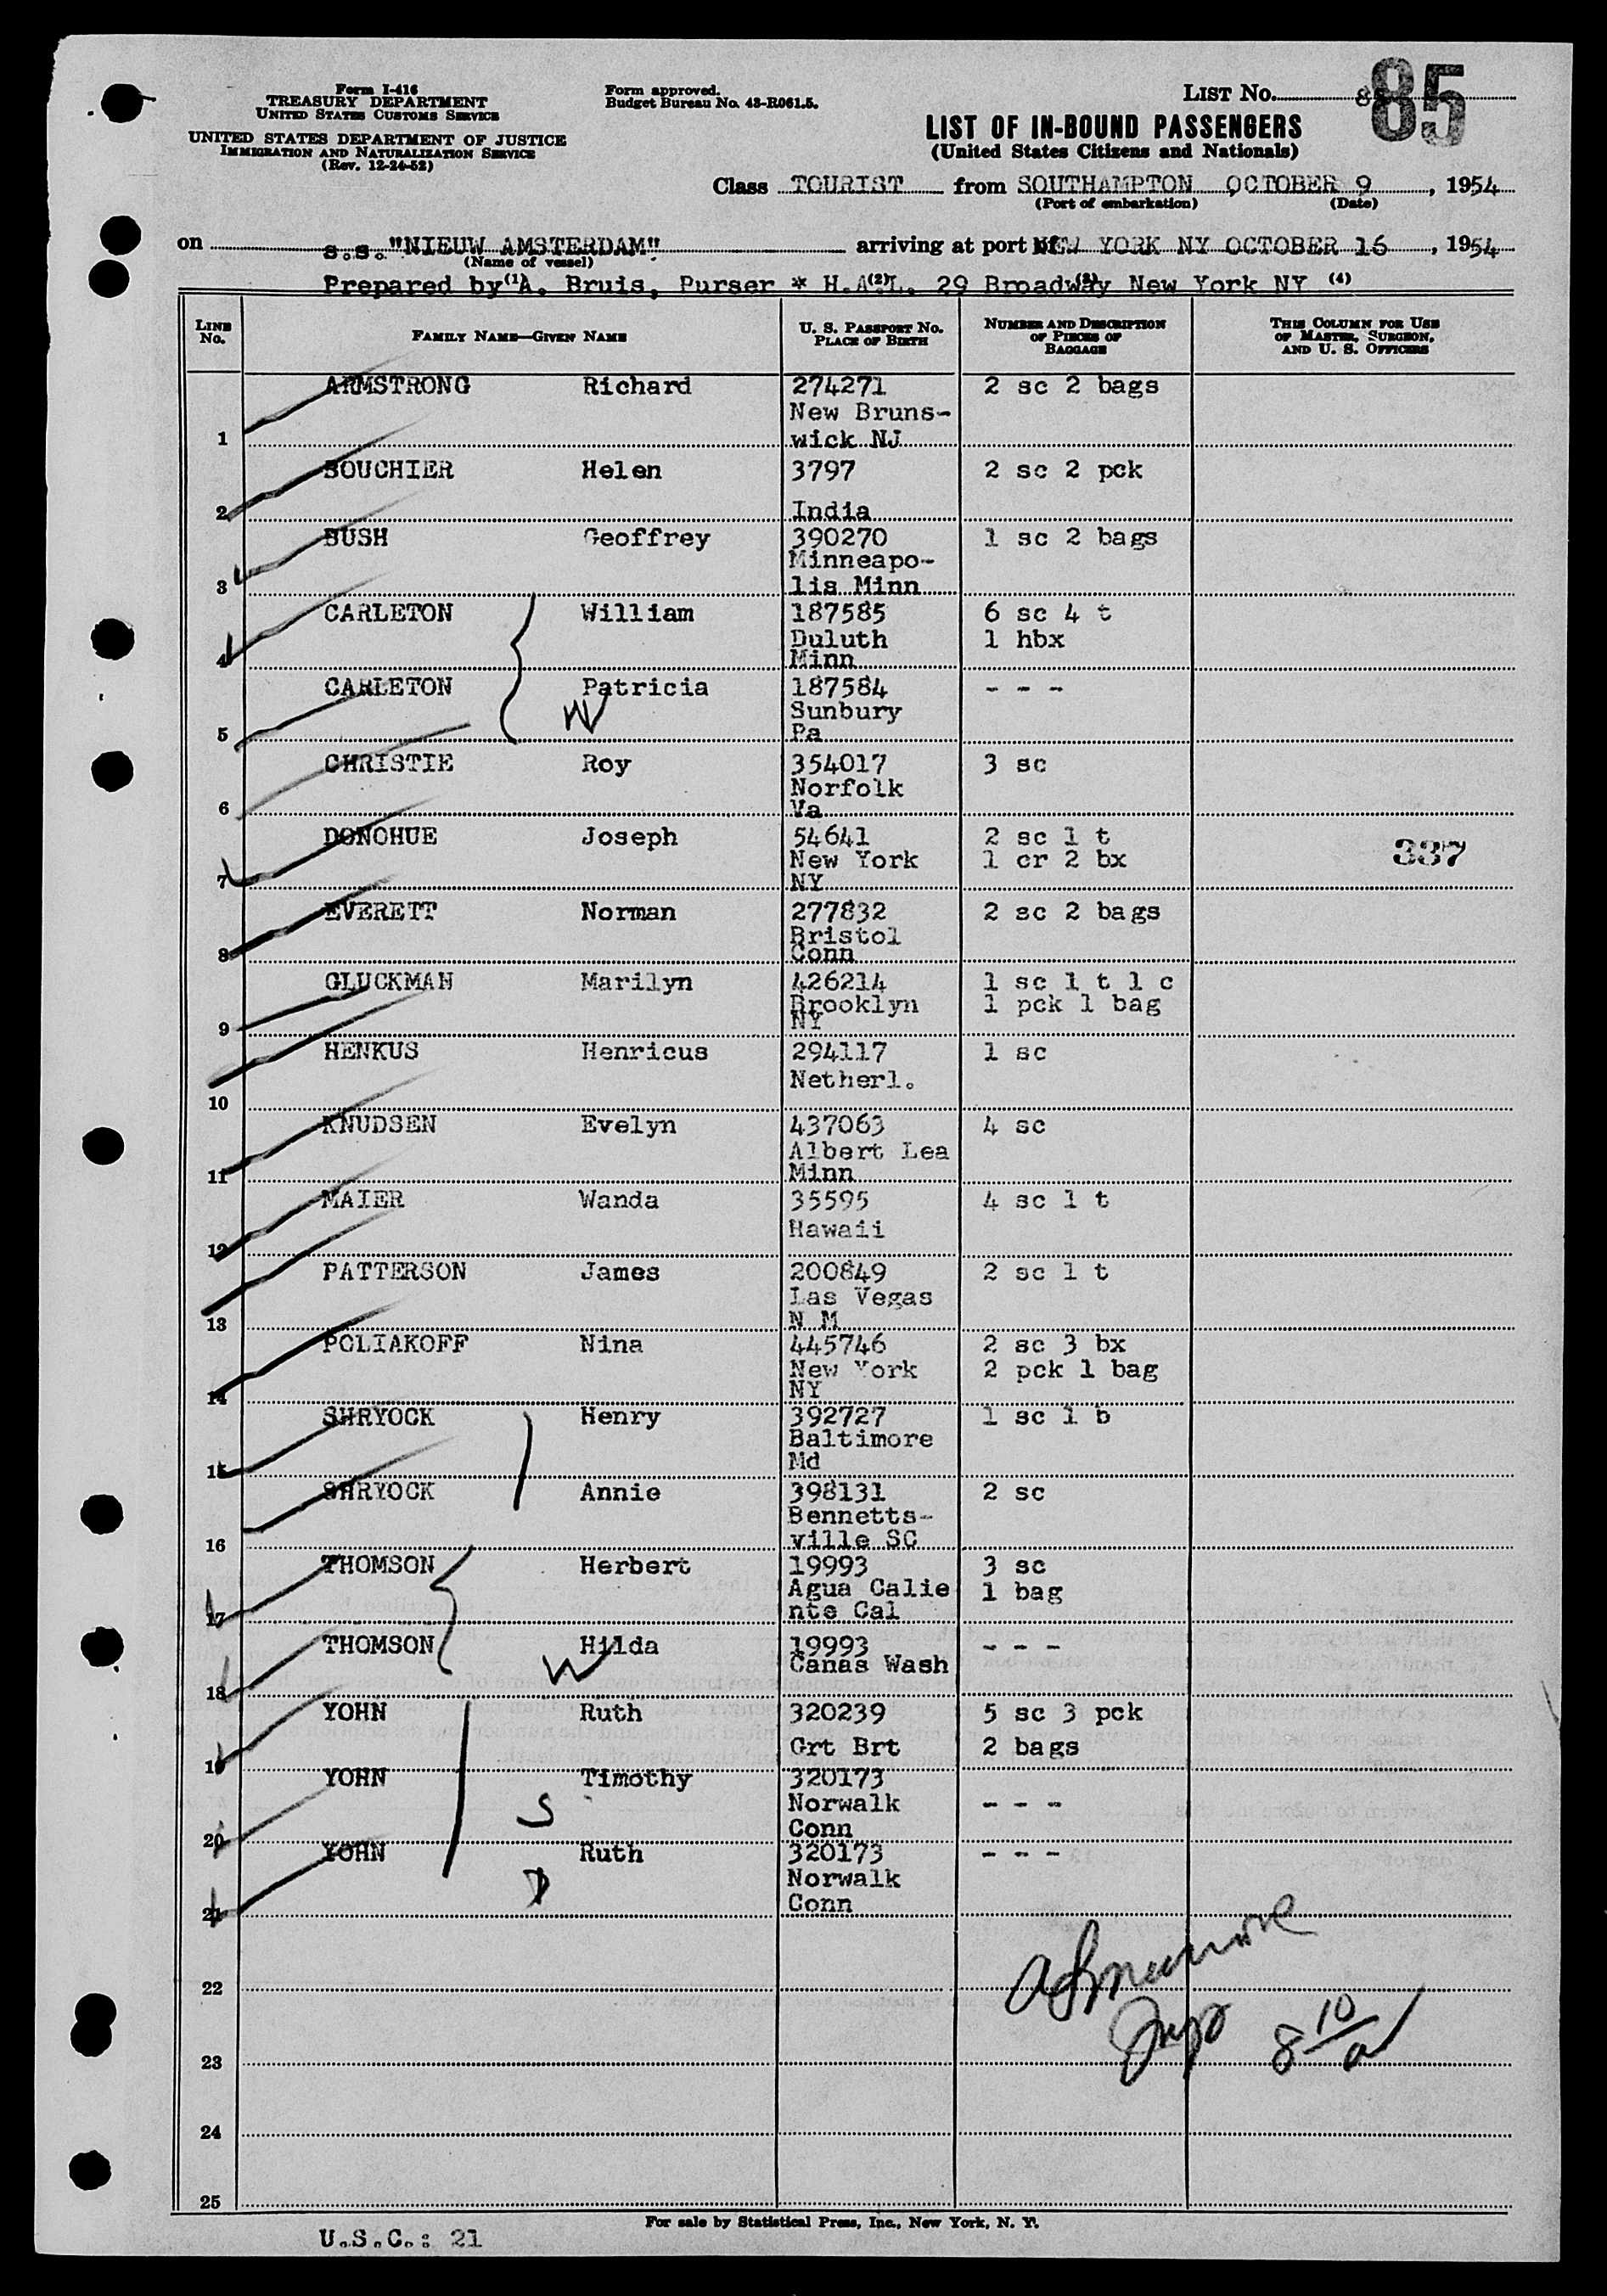 Form I-416
TREASURY DEPARTMENT
UNITED STATES CUSTOMS SERVICE
UNITED STATES DEPARTMENT OF JUSTICE
IMMIGRATION AND NATURALIZATION SERVICE
(Rev. 12-24-52)
Form approved.
Budget Bureau No. 43-R061.5.
LIST No. 85
LIST OF IN-BOUND PASSENGERS
(United States Citizens and Nationals)
Class TOURIST from SOUTHAMPTON OCTOBER 9, 1954
(Port of embarkation) (Date)
on s.s. "NIEUW AMSTERDAM" arriving at port of NEW YORK NY OCTOBER 16, 1954
(Name of vessel)
Prepared by (1) A. Bruis, Purser * H.A.L. (2) 29 Broadway (3) New York NY (4)
LINE No.
FAMILY NAME—GIVEN NAME
U. S. PASSPORT NO.
PLACE OF BIRTH
NUMBER AND DESCRIPTION
OF PIECES OF
BAGGAGE
THIS COLUMN FOR USE
OF MASTER, SURGEON,
AND U. S. OFFICERS
ARMSTRONG Richard 274271 2 sc 2 bags
New Bruns-
1 wick NJ
BOUCHIER Helen 3797 2 sc 2 pck
2 India
BUSH Geoffrey 390270 1 sc 2 bags
Minneapo-
3 lis Minn
CARLETON William 187585 6 sc 4 t
Duluth 1 hbx
4 Minn
CARLETON Patricia 187584 - - -
W Sunbury
5 Pa
CHRISTIE Roy 354017 3 sc
Norfolk
6 Va
DONOHUE Joseph 54641 2 sc 1 t
New York 1 cr 2 bx 337
7 NY
EVERETT Norman 277832 2 sc 2 bags
Bristol
8 Conn
GLUCKMAN Marilyn 426214 1 sc 1 t 1 c
Brooklyn 1 pck 1 bag
9 NY
HENKUS Henricus 294117 1 sc
Netherl.
10
KNUDSEN Evelyn 437063 4 sc
Albert Lea
11 Minn
MAIER Wanda 35595 4 sc 1 t
Hawaii
12
PATTERSON James 200849 2 sc 1 t
Las Vegas
13 N M
POLIAKOFF Nina 445746 2 sc 3 bx
New York 2 pck 1 bag
14 NY
SHRYOCK Henry 392727 1 sc 1 b
Baltimore
15 Md
SHRYOCK Annie 398131 2 sc
Bennetts-
16 ville SC
THOMSON Herbert 19993 3 sc
Agua Calie 1 bag
17 nte Cal
THOMSON Hilda 19993 - - -
W Canas Wash
18
YOHN Ruth 320239 5 sc 3 pck
19 Grt Brt 2 bags
YOHN Timothy 320173
S Norwalk - - -
20 Conn
YOHN Ruth 320173 - - -
D Norwalk
21 Conn
22
23
8 10/a
24
25
For sale by Statistical Press, Inc., New York, N. Y.
U.S.C.: 21